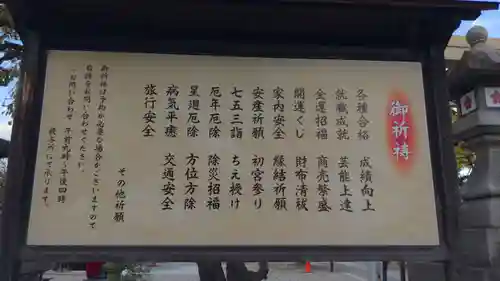 御祈祷
各種合格 成績向上
就職成就 芸能上達
金運招福 商売繁盛
開運くじ 財布清祓
家内安全 縁結祈願
安産祈願 初宮参り
七五三詣 ちえ授け
厄年厄除 除災招福
星廻厄除 方位方除
病気平癒 交通安全
旅行安全
その他祈願
御祈祷は予約が必要な場合がございますので
電話等お問い合わせください。
お問い合わせ 午前九時～午後四時
授与所にて承ります。